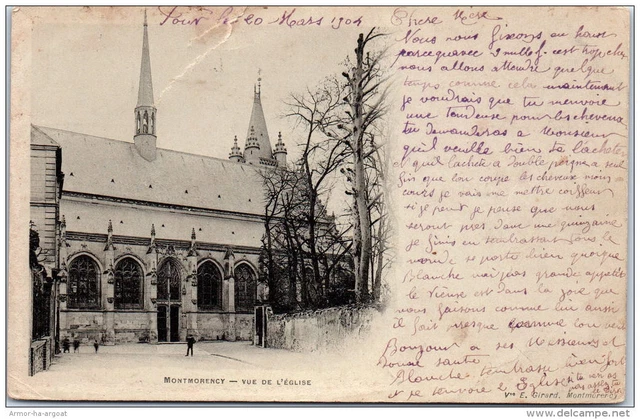 Pour le 20 Mars 1904
Chere Mere
Nous nous fixerons au
parceque avec 5 mille f. c'est trop cher
nous allons attendre quelque
temps comme cela maintenant
je voudrais que tu m'envoie
une tondeuse pour les cheveux
tu demanderas a Monsieur
qu'il veuille bien te l'acheter
et qu'il l'achete a double peigne a seul
fin que l'on coupe les cheveux moins
cours je vais me mettre coiffeur
si je peut je pense que nous
seront pres d'une quinzaine
je finis en t'embrassant tous le
monde se porte bien quoique
Blanche n'ai pas grande appetit
le Vieux est dans la joie que
nous faisons comme lui aussi
il fait presque comme
Bonjour a ses Messieurs et
bonne sante
Blanche t'embrasse bien fort
et je t'envoie l'Eglise
MONTMORENCY — VUE DE L'ÉGLISE
Vve E. Girard, Montmorency
Armor-ha-argoat
www.delcampe.net